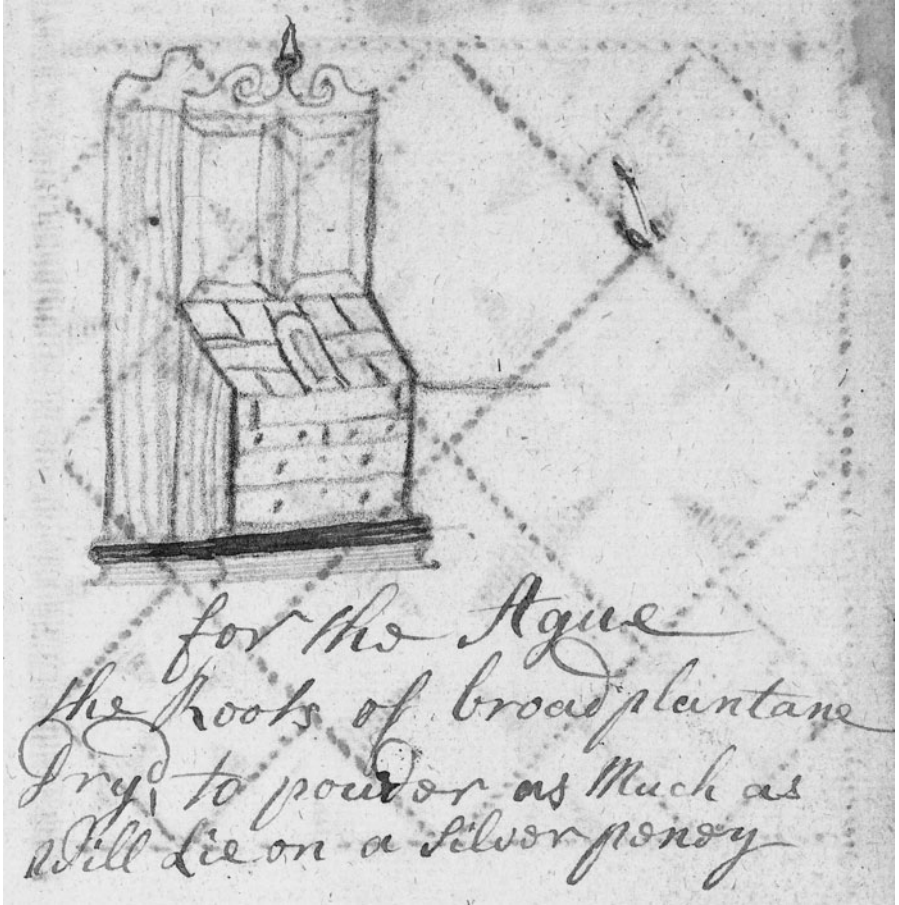 for the Ague
the Roots of broad plantane
Dryd to pouder as Much as
Will Lie on a Silver peney